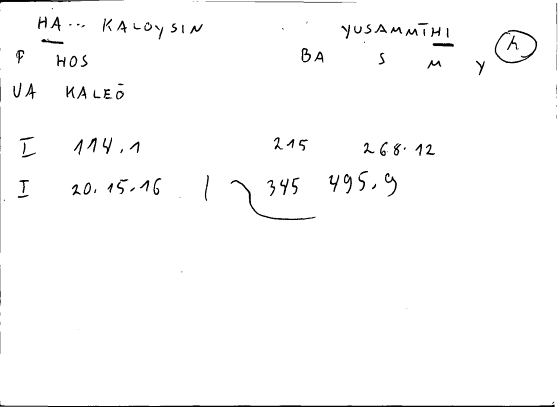 HA... KALOYSIN YUSAMMĪHI h
P HOS BA S M Y
UA KALEŌ
I 114.1 215 268.12
I 20.15.16 | 345 495.9